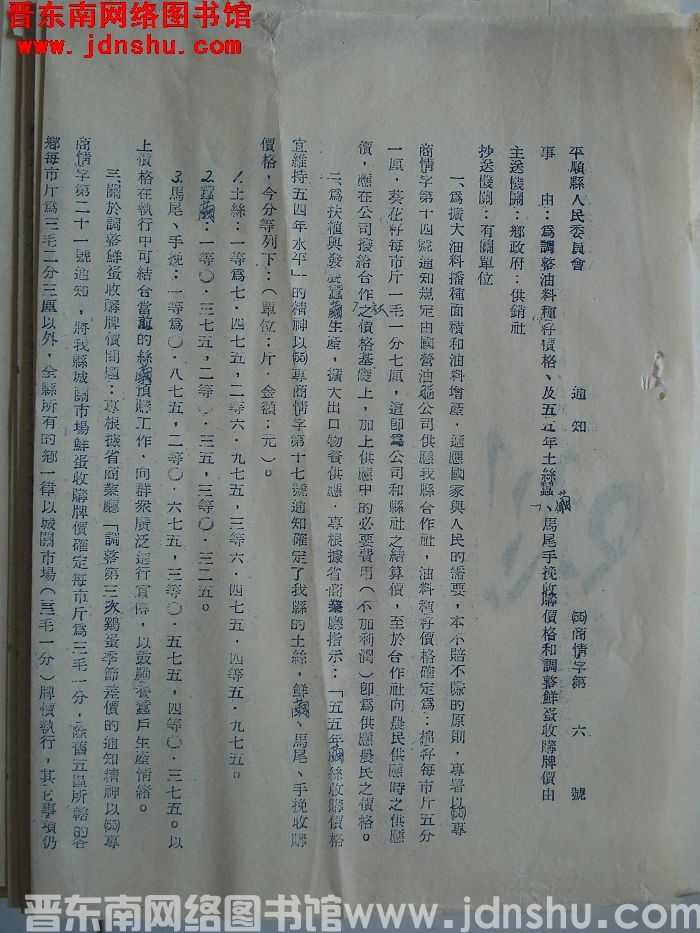 晋东南网络图书馆
www.jdnshu.com
平順縣人民委員會　通知　(55)商情字第六號
事由：為調整油料種籽價格、及五五年土絲蠶繭、馬尾手挽收購價格和調整鮮蛋收購牌價由
主送機關：鄉政府：供銷社
抄送機關：有關單位
一、為擴大油料播種面積和油料增產，適應國家與人民的需要，本不賠不賺的原則，專署以(55)專
商情字第十四號通知規定由國營油脂公司供應我縣合作社，油料種籽價格確定為：棉籽每市斤五分
一厘．葵花籽每市斤一毛一分七厘，這即為公司和縣社之結算價，至於合作社向農民供應時之供應
價，應在公司撥給合作社之價格基礎上，加上供應中的必要費用（不加利潤）即為供應農民之價格。
二、為扶植與發展蠶繭生產，擴大出口物資供應．專根據省商業廳指示：「五五年繭絲收購價格
宜維持五四年水平」的精神以(55)專商情字第十七號通知確定了我縣的土絲，鮮繭、馬尾、手挽收購
價格，今分等列下：（單位：斤．金額：元）。
1.土絲：一等為七．四七五，二等六．九七五，三等六．四七五．四等五．九七五。
2.蠶繭：一等〇．三七五，二等〇．三五，三等〇．三二五。
3.馬尾、手挽：一等為〇．八七五，二等〇．六七五，三等〇．五七五，四等〇．三七五。以
上價格在執行中可結合當前的絲繭預購工作．向群衆廣泛進行宣傳，以鼓勵養蠶戶生產情緒。
三、關於調整鮮蛋收購牌價問題：專根據省商業廳「調整第三次鷄蛋季節差價的通知精神以(55)專
商情字第二十一號通知，將我縣城關市場鮮蛋收購牌價確定每市斤為三毛一分，除舊五區所轄的各
鄉每市斤為三毛二分三厘以外，全縣所有的鄉一律以城關市場（三毛一分）牌價執行，其它事項仍
晋东南网络图书馆 www.jdnshu.com